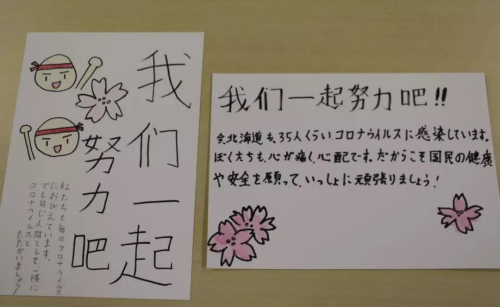 我们一起
努力吧
私たちも毎日コロナウイルス
におびえています。
でも同じ人間として一緒に
コロナウイルスと
たたかいましょう!
我们一起努力吧!!
今北海道も、35人くらいコロナウイルスに感染しています。
ぼくたちも、心が痛く、心配です。だからこそ国民の健康
や安全を願って、いっしょに頑張りましょう!